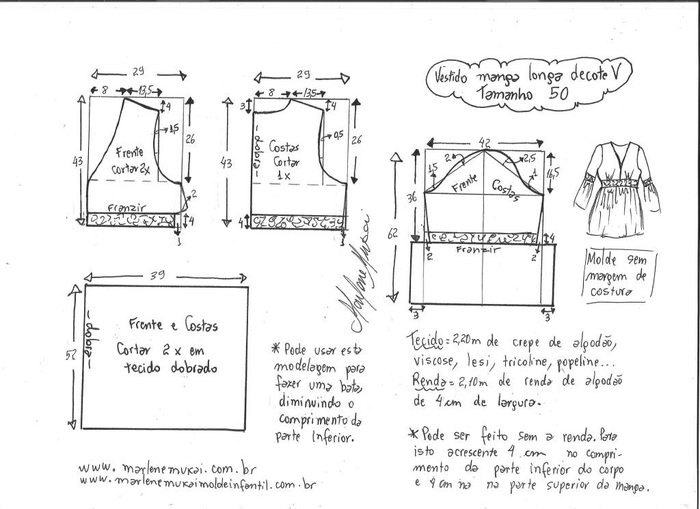 Vestido manga longa decote V
Tamanho 50
29
8
13,5
4
1,5
43
26
Frente
Cortar 2x
2
Franzir
4
1
29
3
8
13,5
4
0,5
43
26
dobra
Costas
Cortar
1x
4
1
42
2
2,5
1,5
1
16,5
Frente
Costas
36
62
4
Franzir
2
2
3
3
Molde sem
margem de
costura
Marlene Mukai
39
52
dobra
Frente e Costas
Cortar 2 x em
tecido dobrado
* Pode usar esta
modelagem para
fazer uma bata,
diminuindo o
comprimento da
parte inferior.
Tecido = 2,20m de crepe de algodão,
viscose, lesi, tricoline, popeline...
Renda = 2,10m de renda de algodão
de 4 cm de largura.
* Pode ser feito sem a renda. Para
isto acrescente 4 cm no compri-
mento da parte inferior do corpo
e 4 cm na na parte superior da manga.
www.marlenemukai.com.br
www.marlenemukaimoldeinfantil.com.br